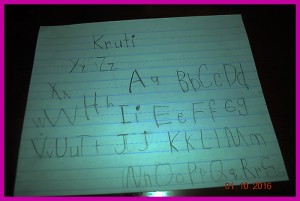 Kruti
Yy Zz
Xx Aa Bb Cc Dd
Ww Hh Ii Ee Ff Gg
Vv Uu Tt Jj Kk Ll Mm
Nn Oo Pp Qq Rr Ss
01 10 2016